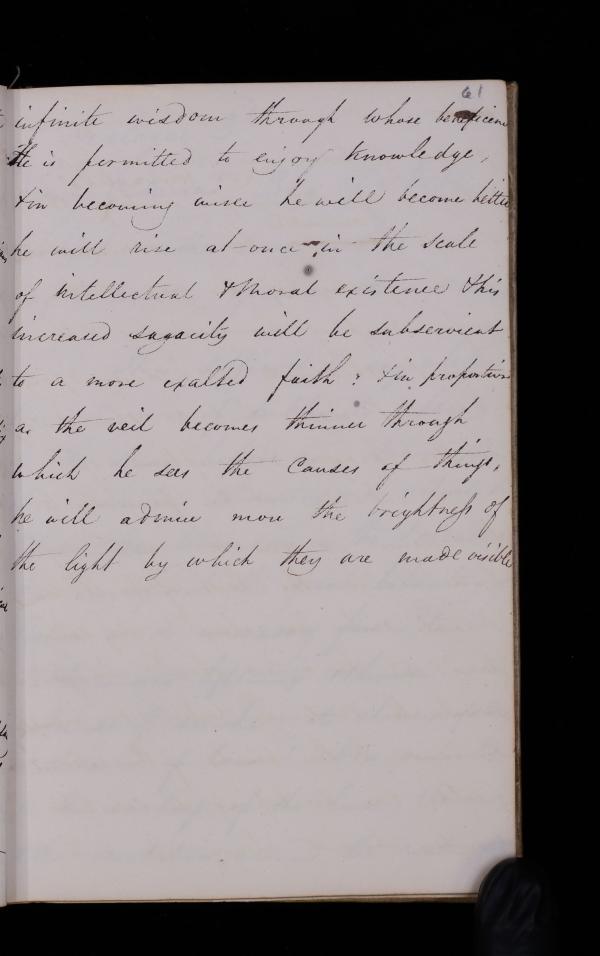 61
infinite wisdom through whose beneficence
He is permitted to enjoy knowledge,
& in becoming wiser he will become better
he will rise at once in the scale
of intellectual & Moral existence & his
increased sagacity will be subservient
to a more exalted faith: & in proportion
as the veil becomes thinner through
which he sees the Causes of things,
he will admire more the brightness of
the light by which they are made visible